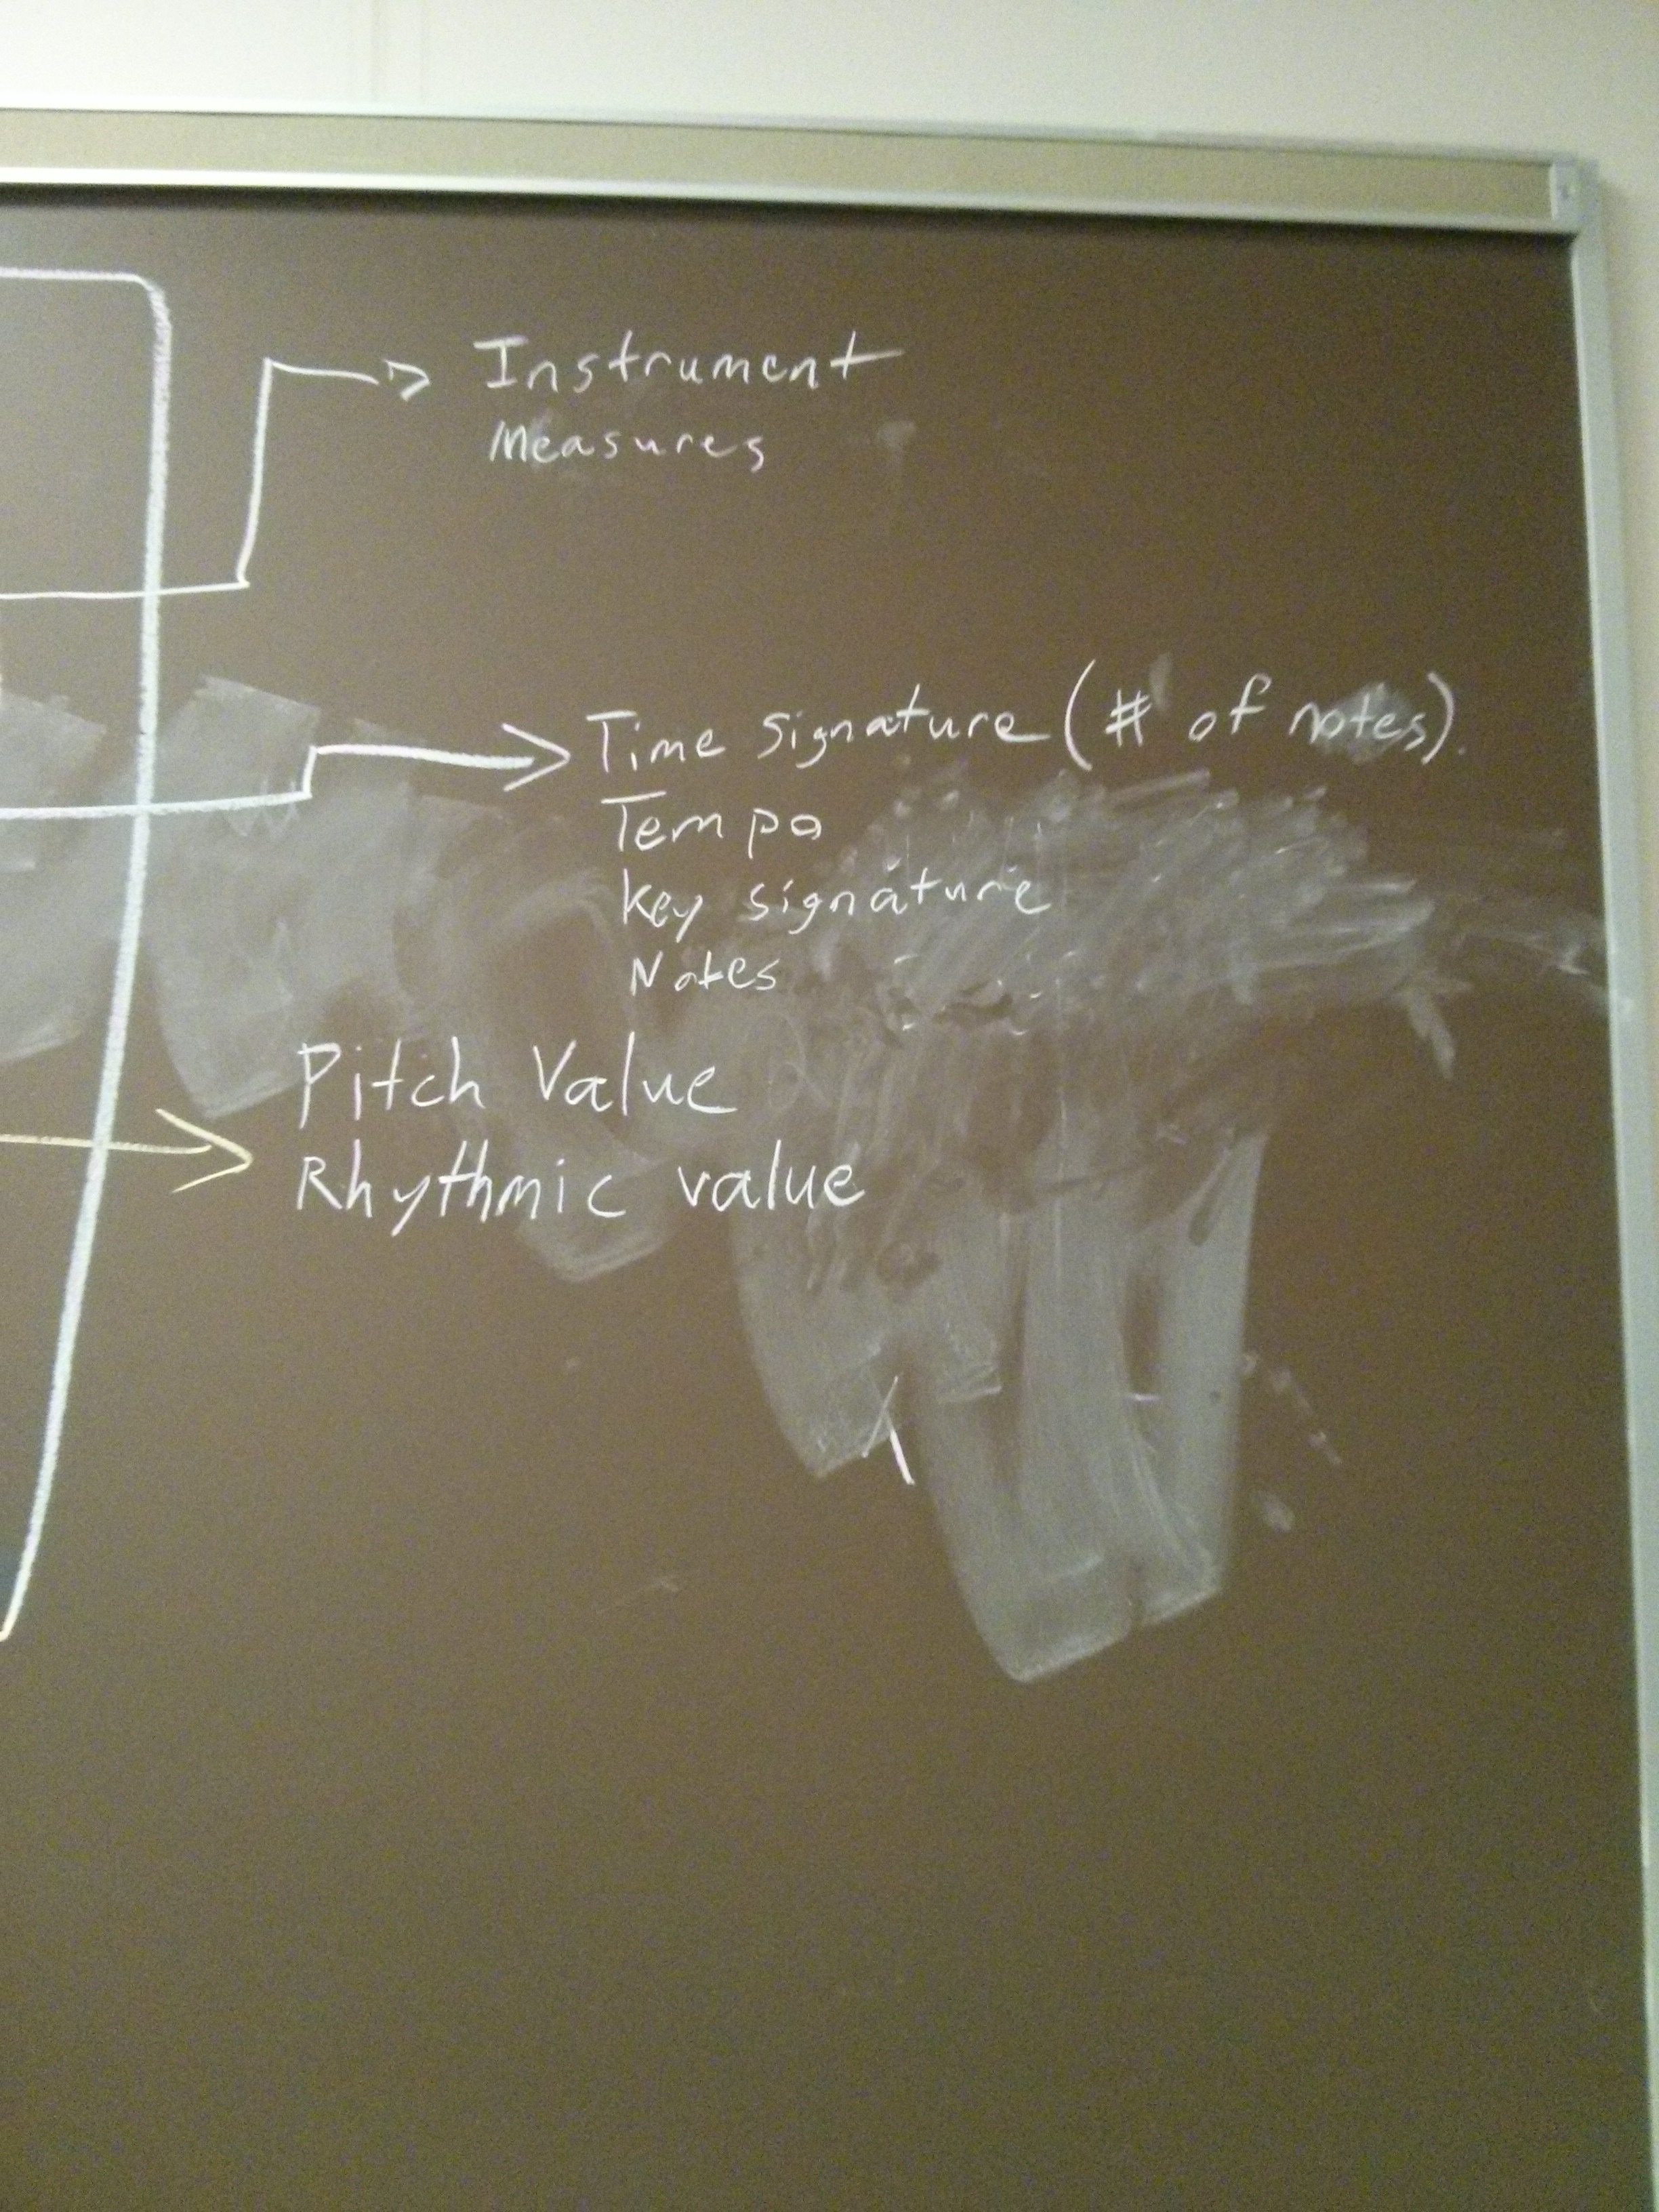 Instrument
Measures
Time Signature (# of notes).
Tempo
key signature
Notes
Pitch Value
Rhythmic value